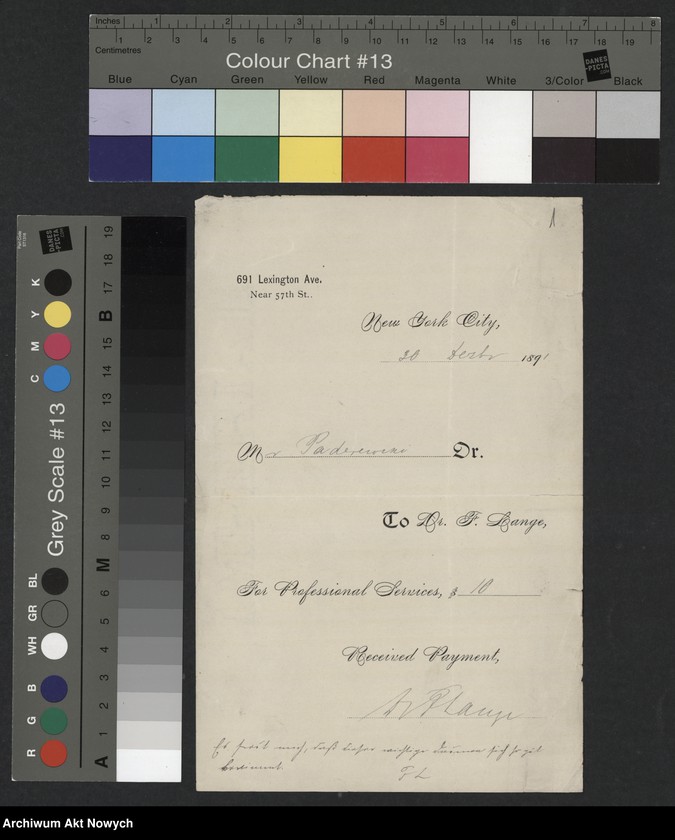 Inches 1 2 3 4 5 6 7 8
Centimetres 1 2 3 4 5 6 7 8 9 10 11 12 13 14 15 16 17 18 19
Colour Chart #13
DANES-PICTA.COM
Blue Cyan Green Yellow Red Magenta White 3/Color Black
1
691 Lexington Ave.
Near 57th St..
New York City,
20 1891
Mr Paderewski Dr.
To Dr. F. Lange,
For Professional Services, $ 10
Received Payment,
Dr F Lange
Es freut mich, daß
F L
Grey Scale #13
DANES-PICTA.COM
C M Y K
R G B WH GR BL
A 1 2 3 4 5 6 M 8 9 10 11 12 13 14 15 B 17 18 19
Archiwum Akt Nowych